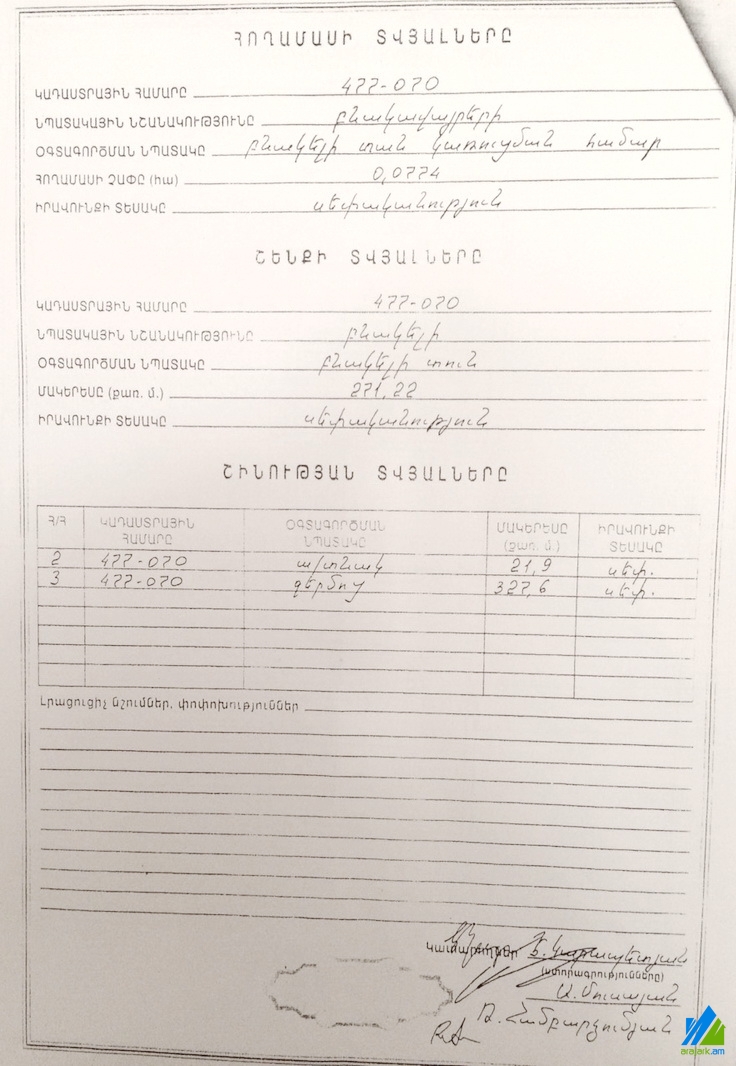 ՀՈՂԱՄԱՍԻ ՏՎՅԱԼՆԵՐԸ
ԿԱԴԱՍՏՐԱՅԻՆ ՀԱՄԱՐԸ 477-070
ՆՊԱՏԱԿԱՅԻՆ ՆՇԱՆԱԿՈՒԹՅՈՒՆԸ բնակավայրերի
ՕԳՏԱԳՈՐԾՄԱՆ ՆՊԱՏԱԿԸ բնակելի տան կառուցման համար
ՀՈՂԱՄԱՍԻ ՉԱՓԸ (հա) 0,0774
ԻՐԱՎՈՒՆՔԻ ՏԵՍԱԿԸ սեփականություն
ՇԵՆՔԻ ՏՎՅԱԼՆԵՐԸ
ԿԱԴԱՍՏՐԱՅԻՆ ՀԱՄԱՐԸ 477-070
ՆՊԱՏԱԿԱՅԻՆ ՆՇԱՆԱԿՈՒԹՅՈՒՆԸ բնակելի
ՕԳՏԱԳՈՐԾՄԱՆ ՆՊԱՏԱԿԸ բնակելի տուն
ՄԱԿԵՐԵՍԸ (քառ. մ.) 271,22
ԻՐԱՎՈՒՆՔԻ ՏԵՍԱԿԸ սեփականություն
ՇԻՆՈՒԹՅԱՆ ՏՎՅԱԼՆԵՐԸ
Հ/Հ ԿԱԴԱՍՏՐԱՅԻՆ ՕԳՏԱԳՈՐԾՄԱՆ ՄԱԿԵՐԵՍԸ ԻՐԱՎՈՒՆՔԻ
ՀԱՄԱՐԸ ՆՊԱՏԱԿԸ (քառ. մ.) ՏԵՍԱԿԸ
2 477-070 ավտտնակ 21,9 սեփ.
3 477-070 ջերմոց 327,6 սեփ.
Լրացուցիչ նշումներ, փոփոխություններ
Կատարողներ Ե. Կարապետյան
(ստորագրությունները)
Ա. Մուսայան
Ռ. Համբարձումյան
arajark.am